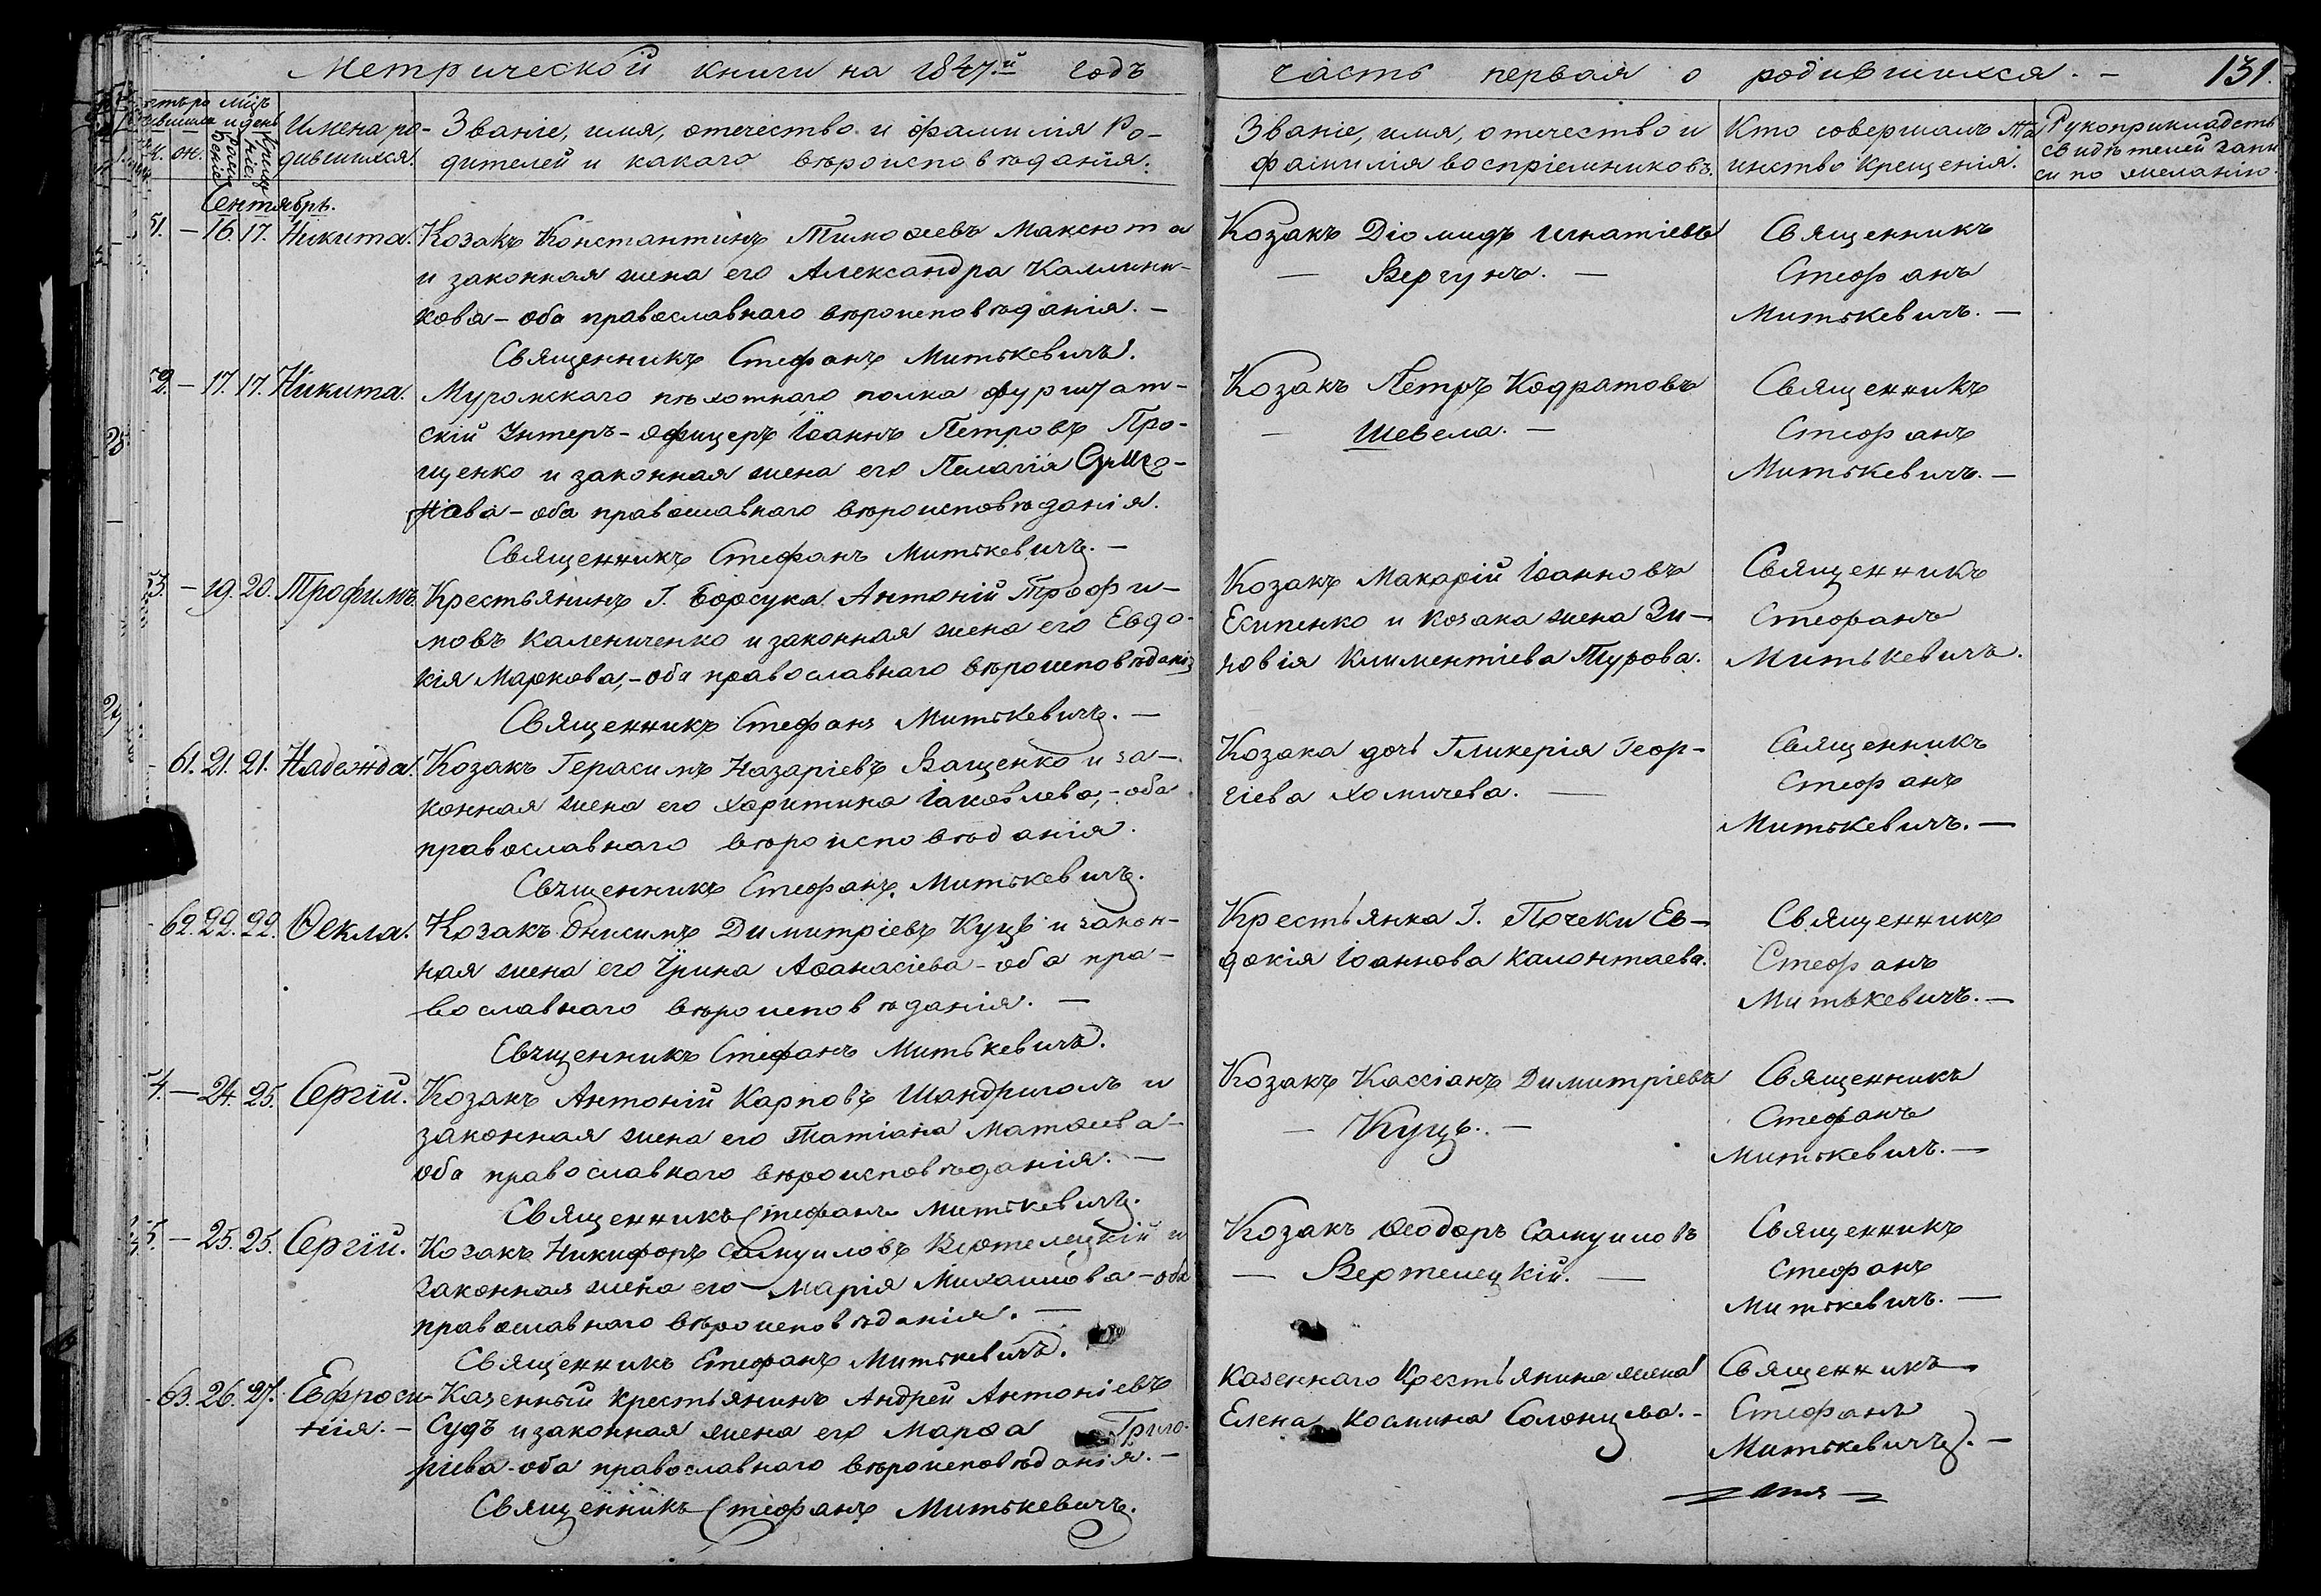 Метрической книги на 1847.й годъ
часть первая о родившихся. — 131.
Имена ро-
дившихся.
Званіе, имя, отечество и фамилія Ро-
дителей и какаго вѣроисповѣданія.
Званіе, имя, отечество и
фамилія воспріемниковъ.
Кто совершалъ та
инство крещенія.
Рукоприкладсть
свидѣтелей запи
си по желанію.
Сентябрь.
51. — 16. 17. Никита. Козакъ Константинъ Тимоѳеевъ Максюта
и законная жена его Александра Калини-
кова — оба православнаго вѣроисповѣданія. —
Священникъ Стефанъ Митькевичъ.
Козакъ Діомидъ Игнатіевъ
— Вергунъ. —
Священникъ
Стефанъ
Митькевичъ. —
52. — 17. 17. Никита. Муромскаго пѣхотнаго полка фурштат-
скій Унтеръ-офицеръ Іоаннъ Петровъ Про-
щенко и законная жена его Пелагія
— оба православнаго вѣроисповѣданія.
Священникъ Стефанъ Митькевичъ. —
Козакъ Петръ Кодратовъ
— Шевела. —
Священникъ
Стефанъ
Митькевичъ. —
53. — 19. 20. Трофимъ. Крестьянинъ Г. Борсука Антоній Трофи-
мовъ Калениченко и законная жена его Евдо-
кія Маркова, — оба православнаго вѣроисповѣданія
Священникъ Стефанъ Митькевичъ. —
Козакъ Макарій Іоанновъ
Есипенко и козака жена Зи-
новія Климентіева Турова.
Священникъ
Стефанъ
Митькевичъ.
61. 21. 21. Надежда. Козакъ Герасимъ Назаріевъ Ващенко и за-
конная жена его Харитина Іаковлева, — оба
православнаго вѣроисповѣданія.
Священникъ Стефанъ Митькевичъ.
Козака дочь Гликерія Геор-
гіева Хомичева. —
Священникъ
Стефанъ
Митькевичъ. —
62. 22. 22. Ѳекла. Козакъ Онисимъ Димитріевъ Куцъ и закон-
ная жена его Ирина Аѳанасіева — оба пра-
вославнаго вѣроисповѣданія. —
Священникъ Стефанъ Митькевичъ.
Крестьянка Г. Почеки Ев-
докія Іоаннова Калонтаева.
Священникъ
Стефанъ
Митькевичъ. —
54. — 24. 25. Сергій. Козакъ Антоній Карповъ Шандриголъ и
законная жена его Татіана Матѳеева —
оба православнаго вѣроисповѣданія. —
Священникъ Стефанъ Митькевичъ.
Козакъ Кассіанъ Димитріевъ
— Куцъ. —
Священникъ
Стефанъ
Митькевичъ. —
55. — 25. 25. Сергій. Козакъ Никифоръ Самуиловъ Вертелецкій и
законная жена его Марія Михаилова — оба
православнаго вѣроисповѣданія. —
Священникъ Стефанъ Митькевичъ.
Козакъ Ѳеодоръ Самуиловъ
— Вертелецкій. —
Священникъ
Стефанъ
Митькевичъ. —
63. 26. 27. Евфроси-
нія. —
Казенный крестьянинъ Андрей Антоніевъ
Судъ и законная жена его Марѳа Григо-
риева — оба православнаго вѣроисповѣданія. —
Священникъ Стефанъ Митькевичъ.
Казеннаго крестьянина жена
Елена Космина Солонцева. —
Священникъ
Стефанъ
Митькевичъ. —